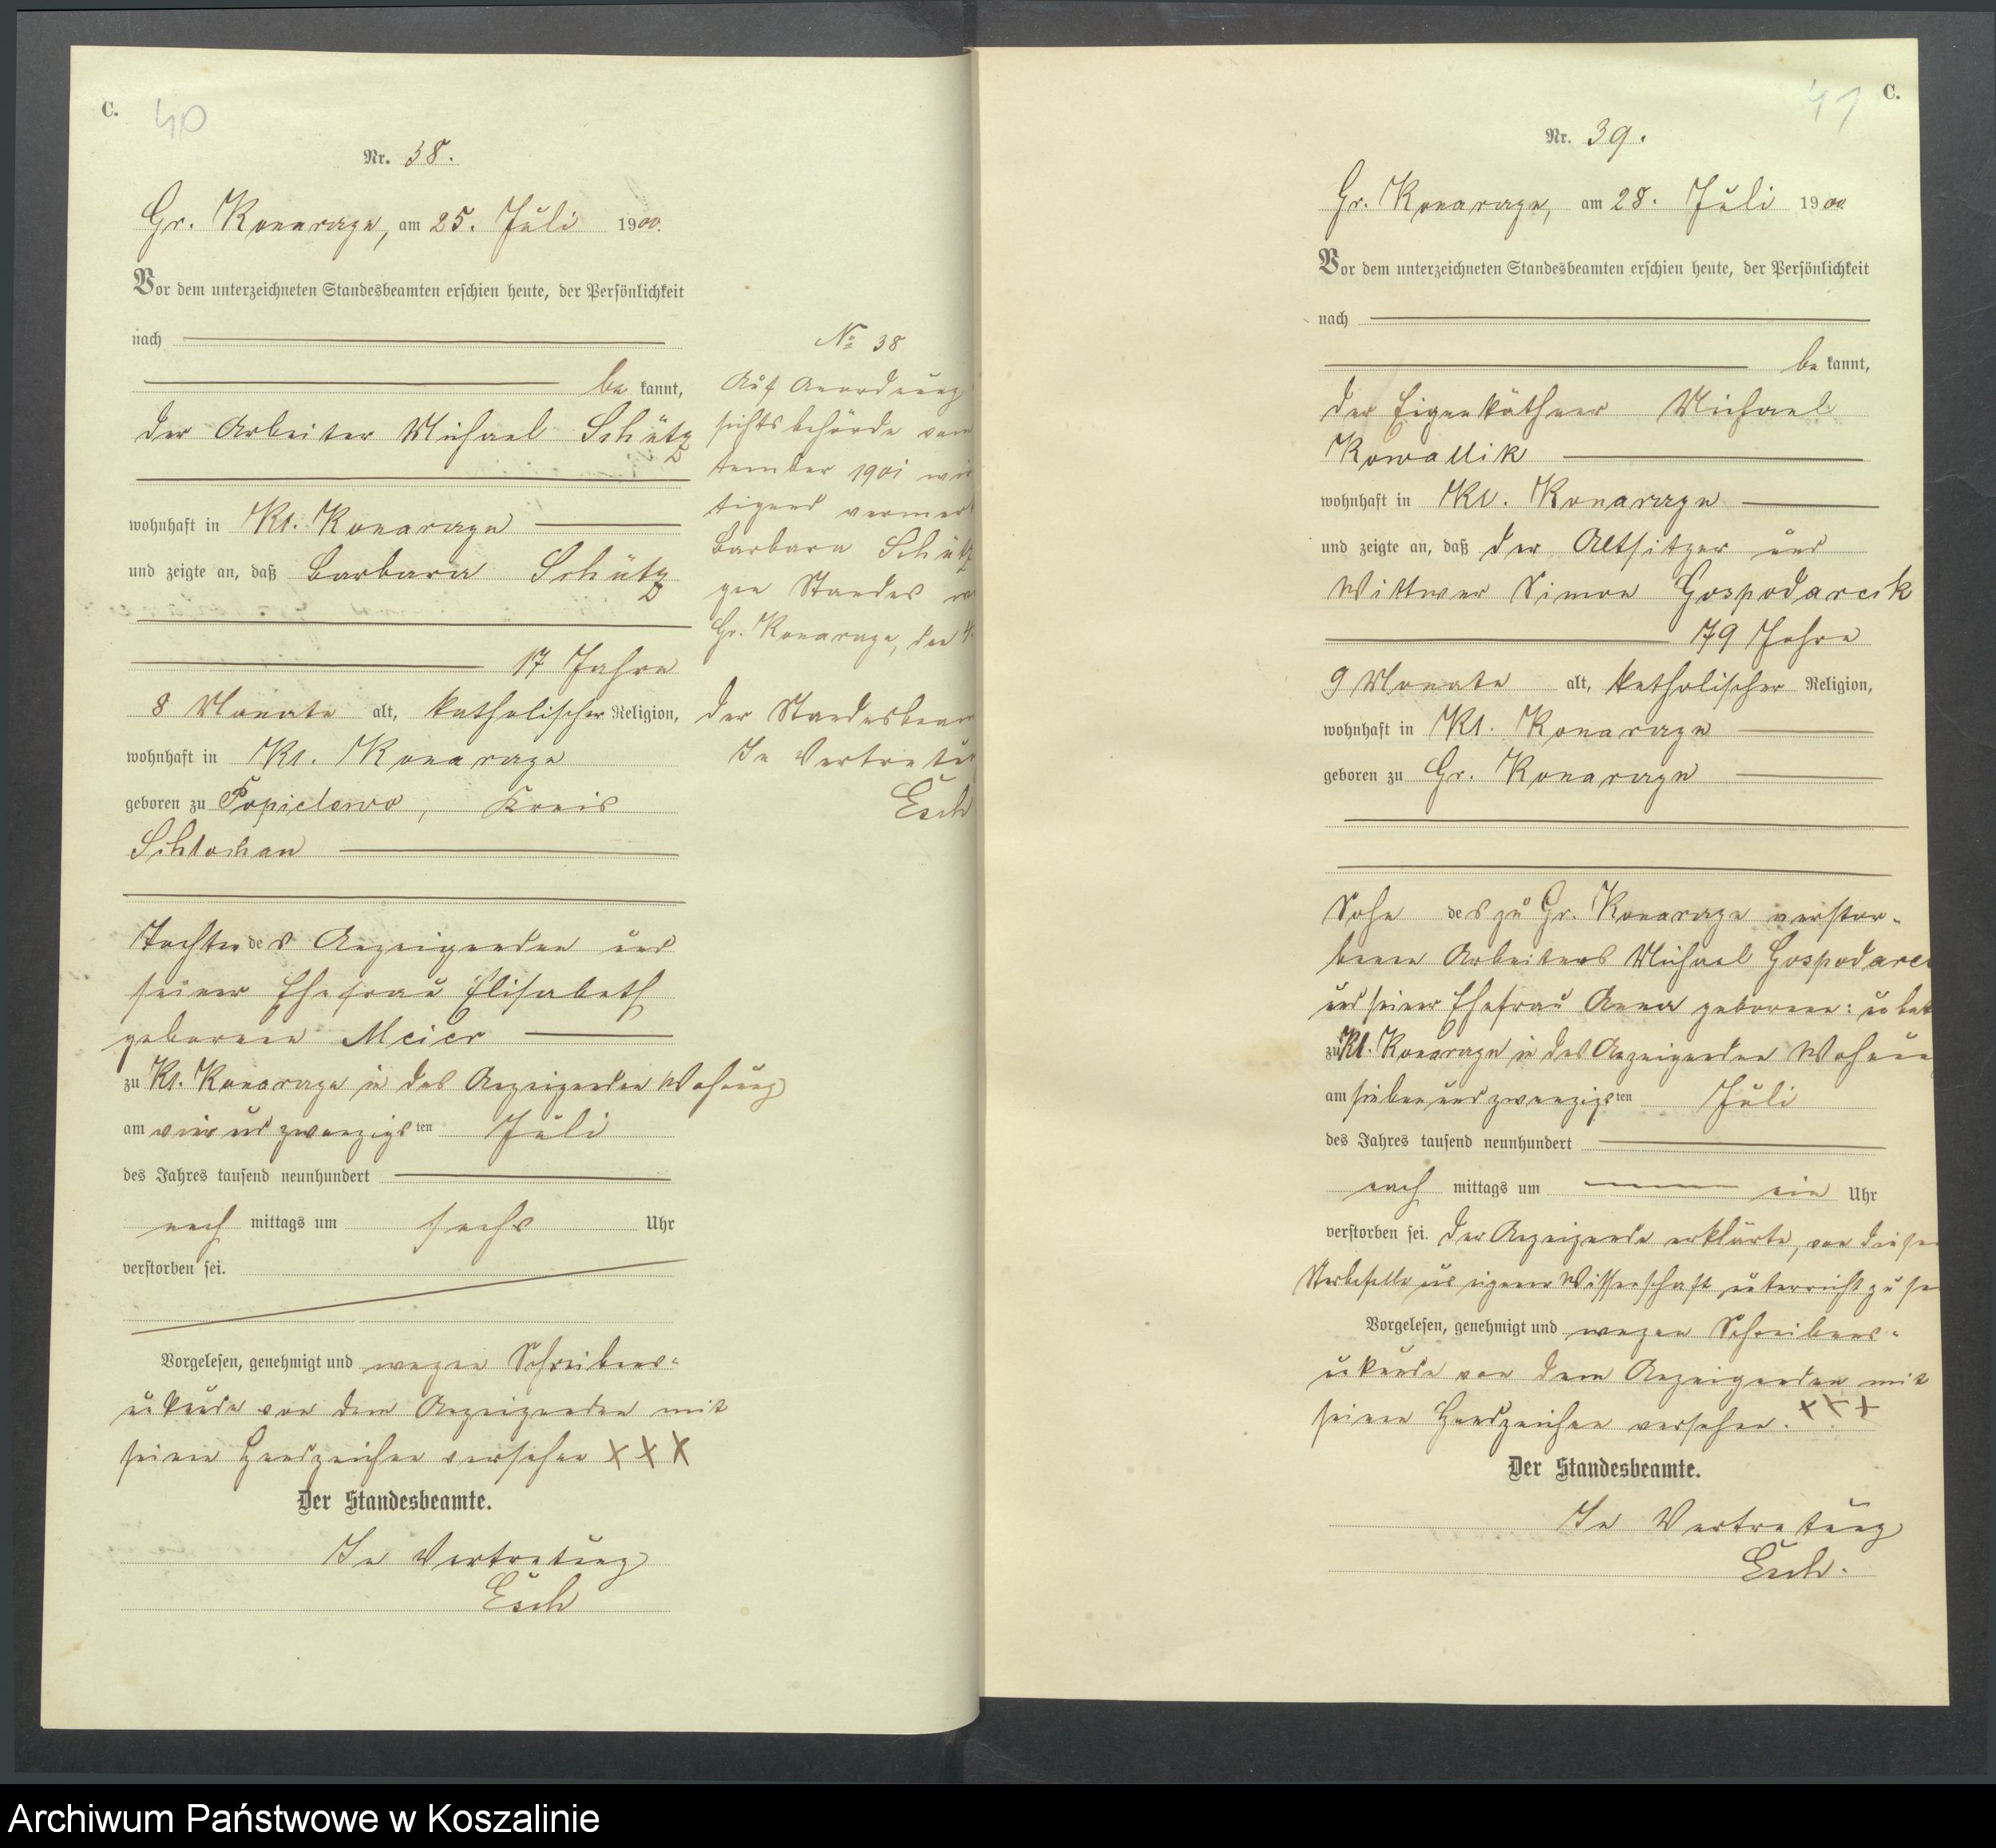 C. 40
Nr. 38.
Gr. Konarzyn, am 25. Juli 1900.
Vor dem unterzeichneten Standesbeamten erschien heute, der Persönlichkeit
nach
be kannt,
der Arbeiter Michael Schütz
wohnhaft in Kl. Konarzyn
und zeigte an, daß Barbara Schütz
17 Jahre
8 Monate alt, katholischer Religion,
wohnhaft in Kl. Konarzyn
geboren zu Kreis
Schlochau
Tochter des Anzeigenden und
seiner Ehefrau Elisabeth
geborenen Meier
zu Kl. Konarzyn in des Anzeigenden Wohnung
am vier und zwanzigsten Juli
des Jahres tausend neunhundert
nach mittags um sechs Uhr
verstorben sei.
Vorgelesen, genehmigt und wegen Schreibens-
unkunde von dem Anzeigenden mit
seinen Handzeichen versehen XXX
Der Standesbeamte.
In Vertretung
Esch
No 38
Auf Anordnung
sichtsbehörde vom
tember 1901 wir
tigend vermer
Barbara Schütz
gen Standes
Gr. Konarzyn, den 4.
Der Standesbeam
In Vertretu
Esch
41 C.
Nr. 39.
Gr. Konarzyn, am 28. Juli 1900
Vor dem unterzeichneten Standesbeamten erschien heute, der Persönlichkeit
nach
be kannt,
der Eigenkäthner Michael
Kowallik
wohnhaft in Kl. Konarzyn
und zeigte an, daß der Altsitzer und
Wittwer Simon Gospodarek
79 Jahre
9 Monate alt, katholischer Religion,
wohnhaft in Kl. Konarzyn
geboren zu Gr. Konarzyn
Sohn des zu Gr. Konarzyn verstor-
benen Arbeiters Michael Gospodare
und seiner Ehefrau Anna geborenen: unbek
zu Kl. Konarzyn in des Anzeigenden Wohnun
am sieben und zwanzigsten Juli
des Jahres tausend neunhundert
nach mittags um ein Uhr
verstorben sei. Der Anzeigende erklärte, von diesem
Sterbefalle aus eigener Wissenschaft unterricht zu se
Vorgelesen, genehmigt und wegen Schreibens-
unkunde von dem Anzeigenden mit
seinen Handzeichen versehen. XXX
Der Standesbeamte.
In Vertretung
Esch.
Archiwum Państwowe w Koszalinie